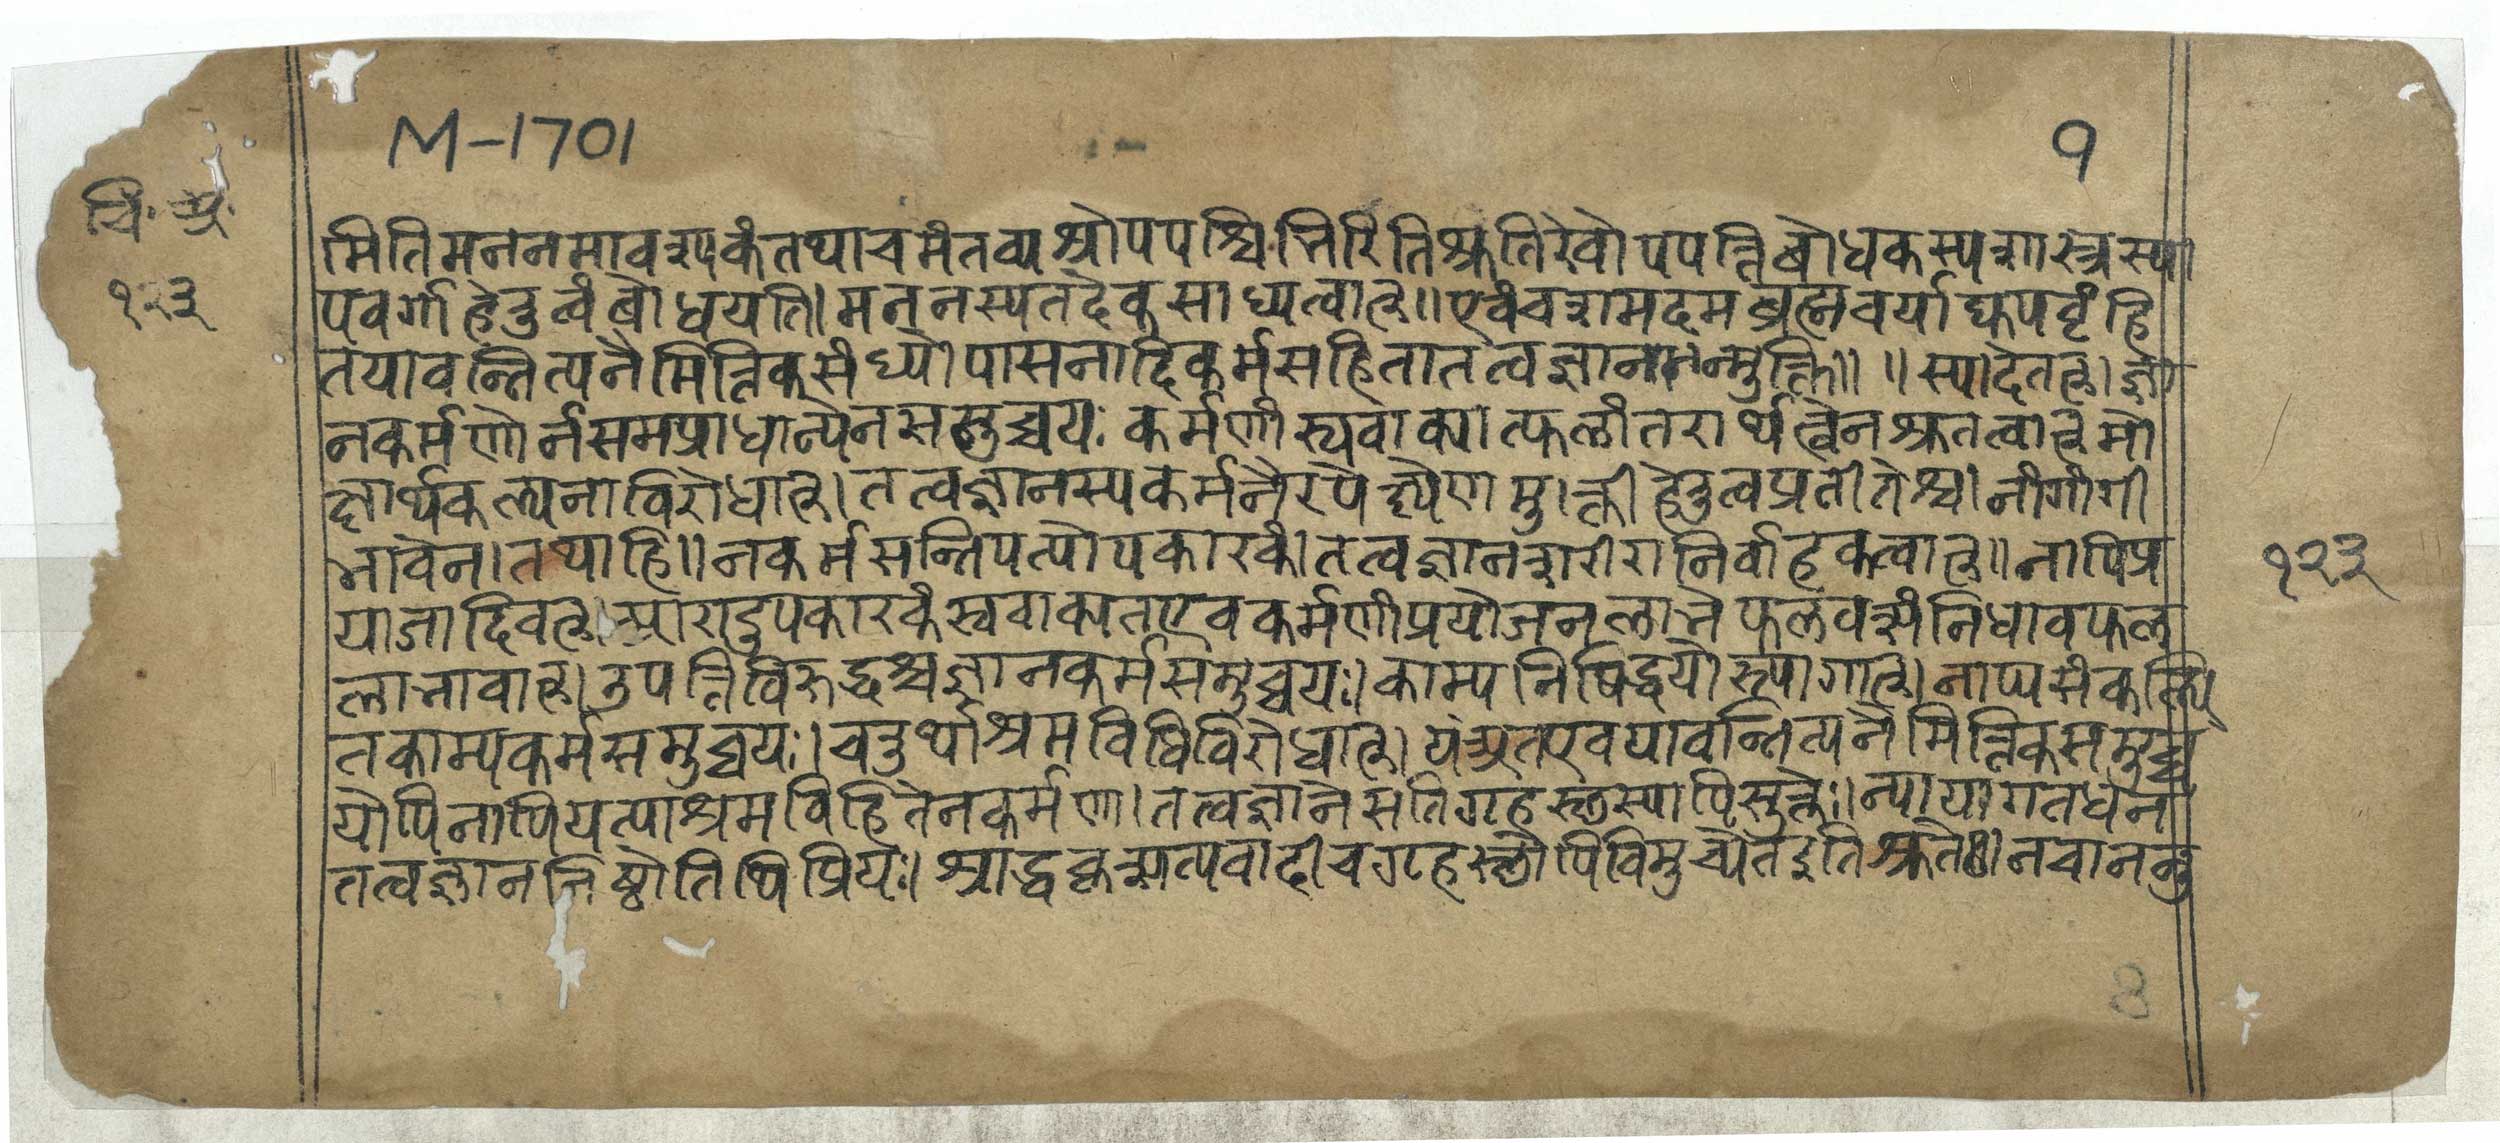 M-1701
१
चिं. अ.
१२३
मितिमननमावश्यकंतथाचमंतव्यश्चोपपश्चित्तिरितिश्रुतिरेवोपपत्तिबोधकस्यशास्त्रस्या
पवर्गाहेतुत्वंबोधयति। मननस्यतदेकसाध्यत्वात्॥एवंचशमदमब्रह्मचर्याद्युपबृंहि
तयावन्नित्यनैमित्तिकसंध्योपासनादिकर्मसहितातत्वज्ञानान्मुक्तिः॥ ॥स्यादेतत्।ज्ञा
नकर्मणोर्नसमप्राधान्येनसमुच्चयः कर्मणांस्ववाक्यात्फलांतरार्थत्वेनश्रुतत्वात्मो
क्षार्थकल्पनाविरोधात्।तत्वज्ञानस्यकर्मनैरपेक्ष्येणमु।क्तीहेतुत्वप्रतीतेश्च।नांगांगी
भावेन।तथाहि॥नकर्मसन्निपत्योपकारकं।तत्वज्ञानशरीरानिर्वाहकत्वात्॥नापिप्र
याजादिवत्।आरादुपकारकंस्ववाक्यतएवकर्मणांप्रयोजनलाभेफलवत्संनिधावफल
लाभावात्।उपपत्तिविरुद्धश्चज्ञानकर्मसमुच्चयः।काम्यनिषिद्धयोस्त्यागात्।नाप्यसंकल्पि
तकाम्यकर्मसमुच्चयः।चतुर्थाश्रमविधिविरोधात्। अतएवयावन्नित्यनैमित्तिकसमुच्च
योपिनापियत्याश्रमविहितेनकर्मणा।तत्वज्ञानेसतिगृहस्थस्यापिमुक्तेः।न्यायागतधन
तत्वज्ञाननिष्ठोतिथिप्रियः। श्राद्धकृत्सत्यवादीचगृहस्थोपिविमुच्येतइतिश्रुतेः।नचाननु
१२३